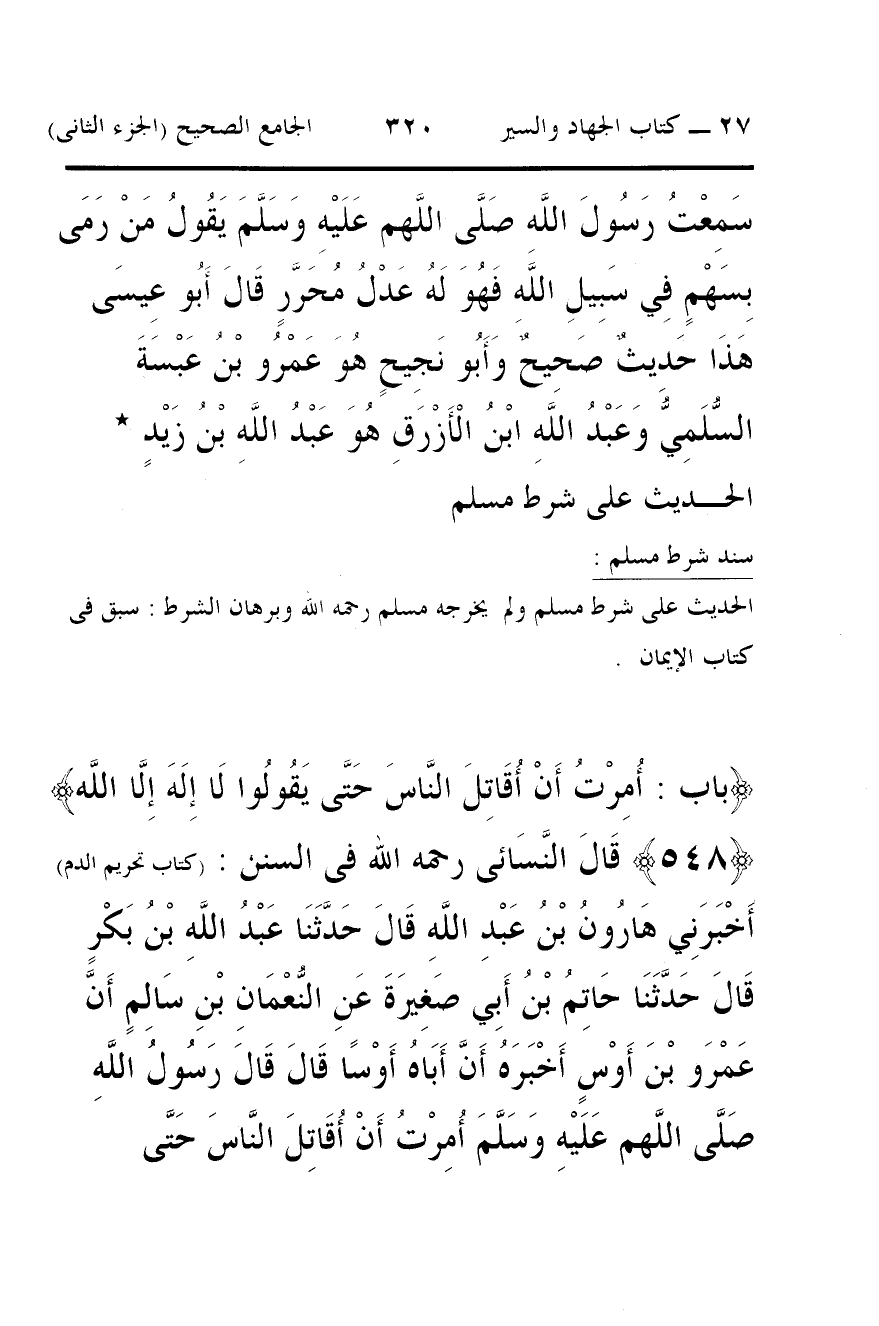 ٢٧ ــ كتاب الجهاد والسير ٣٢٠ الجامع الصحيح (الجزء الثانى)
سَمِعْتُ رَسُولَ اللَّهِ صَلَّى اللَّهم عَلَيْهِ وَسَلَّمَ يَقُولُ مَنْ رَمَى
بِسَهْمٍ فِي سَبِيلِ اللَّهِ فَهُوَ لَهُ عَدْلُ مُحَرَّرٍ قَالَ أَبُو عِيسَى
هَذَا حَدِيثٌ صَحِيحٌ وَأَبُو نَجِيحٍ هُوَ عَمْرُو بْنُ عَبْسَةَ
السُّلَمِيُّ وَعَبْدُ اللَّهِ ابْنُ الْأَزْرَقِ هُوَ عَبْدُ اللَّهِ بْنُ زَيْدٍ ★
الحـــديث على شرط مسلم
سند شرط مسلم :
الحديث على شرط مسلم ولم يخرجه مسلم رحمه الله وبرهان الشرط : سبق فى
كتاب الإيمان .
﴿باب : أُمِرْتُ أَنْ أُقَاتِلَ النَّاسَ حَتَّى يَقُولُوا لَا إِلَهَ إِلَّا اللَّه﴾
﴿٥٤٨﴾ قَالَ النَّسَائى رحمه الله فى السنن : (كتاب تحريم الدم)
أَخْبَرَنِي هَارُونُ بْنُ عَبْدِ اللَّهِ قَالَ حَدَّثَنَا عَبْدُ اللَّهِ بْنُ بَكْرٍ
قَالَ حَدَّثَنَا حَاتِمُ بْنُ أَبِي صَغِيرَةَ عَنِ النُّعْمَانِ بْنِ سَالِمٍ أَنَّ
عَمْرَو بْنَ أَوْسٍ أَخْبَرَهُ أَنَّ أَبَاهُ أَوْسًا قَالَ قَالَ رَسُولُ اللَّهِ
صَلَّى اللَّهم عَلَيْهِ وَسَلَّمَ أُمِرْتُ أَنْ أُقَاتِلَ النَّاسَ حَتَّى